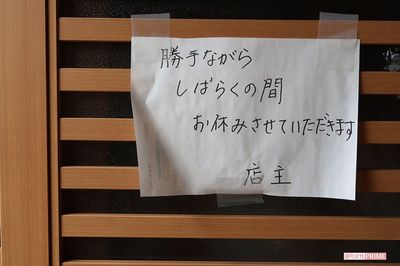 勝手ながら
しばらくの間
お休みさせていただきます
店主
週刊女性PRIME